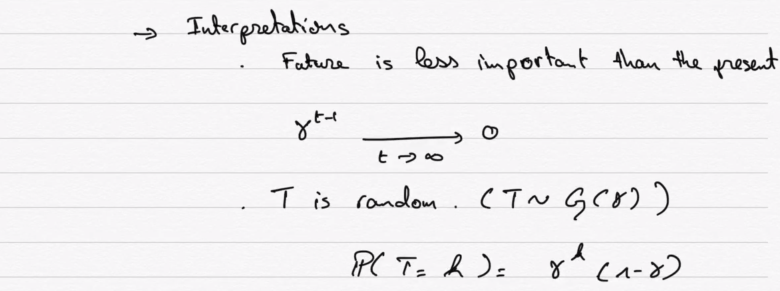 → Interpretations
. Future is less important than the present
γ^{t-1} → 0
t → ∞
. T is random. (T ~ G(γ))
P(T = k) = γ^k (1-γ)